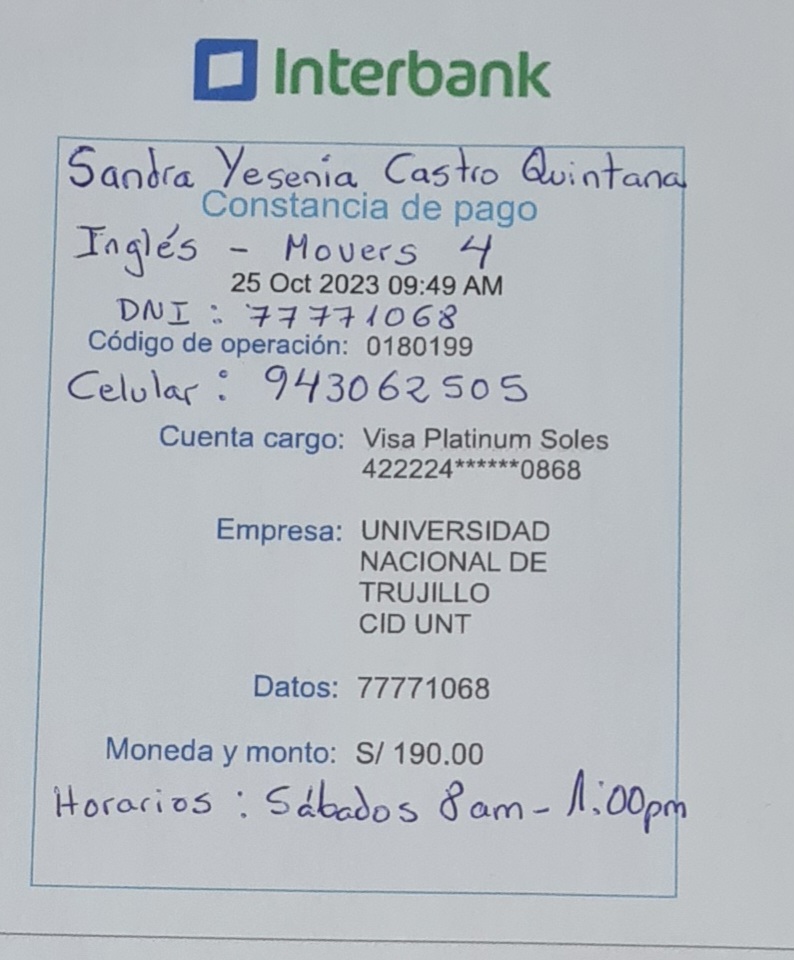 Interbank
Sandra Yesenia Castro Quintana
Constancia de pago
Inglés - Movers 4
25 Oct 2023 09:49 AM
DNI : 77771068
Código de operación: 0180199
Celular : 943062505
Cuenta cargo: Visa Platinum Soles
422224******0868
Empresa: UNIVERSIDAD
NACIONAL DE
TRUJILLO
CID UNT
Datos: 77771068
Moneda y monto: S/ 190.00
Horarios : Sábados 8am - 1:00pm